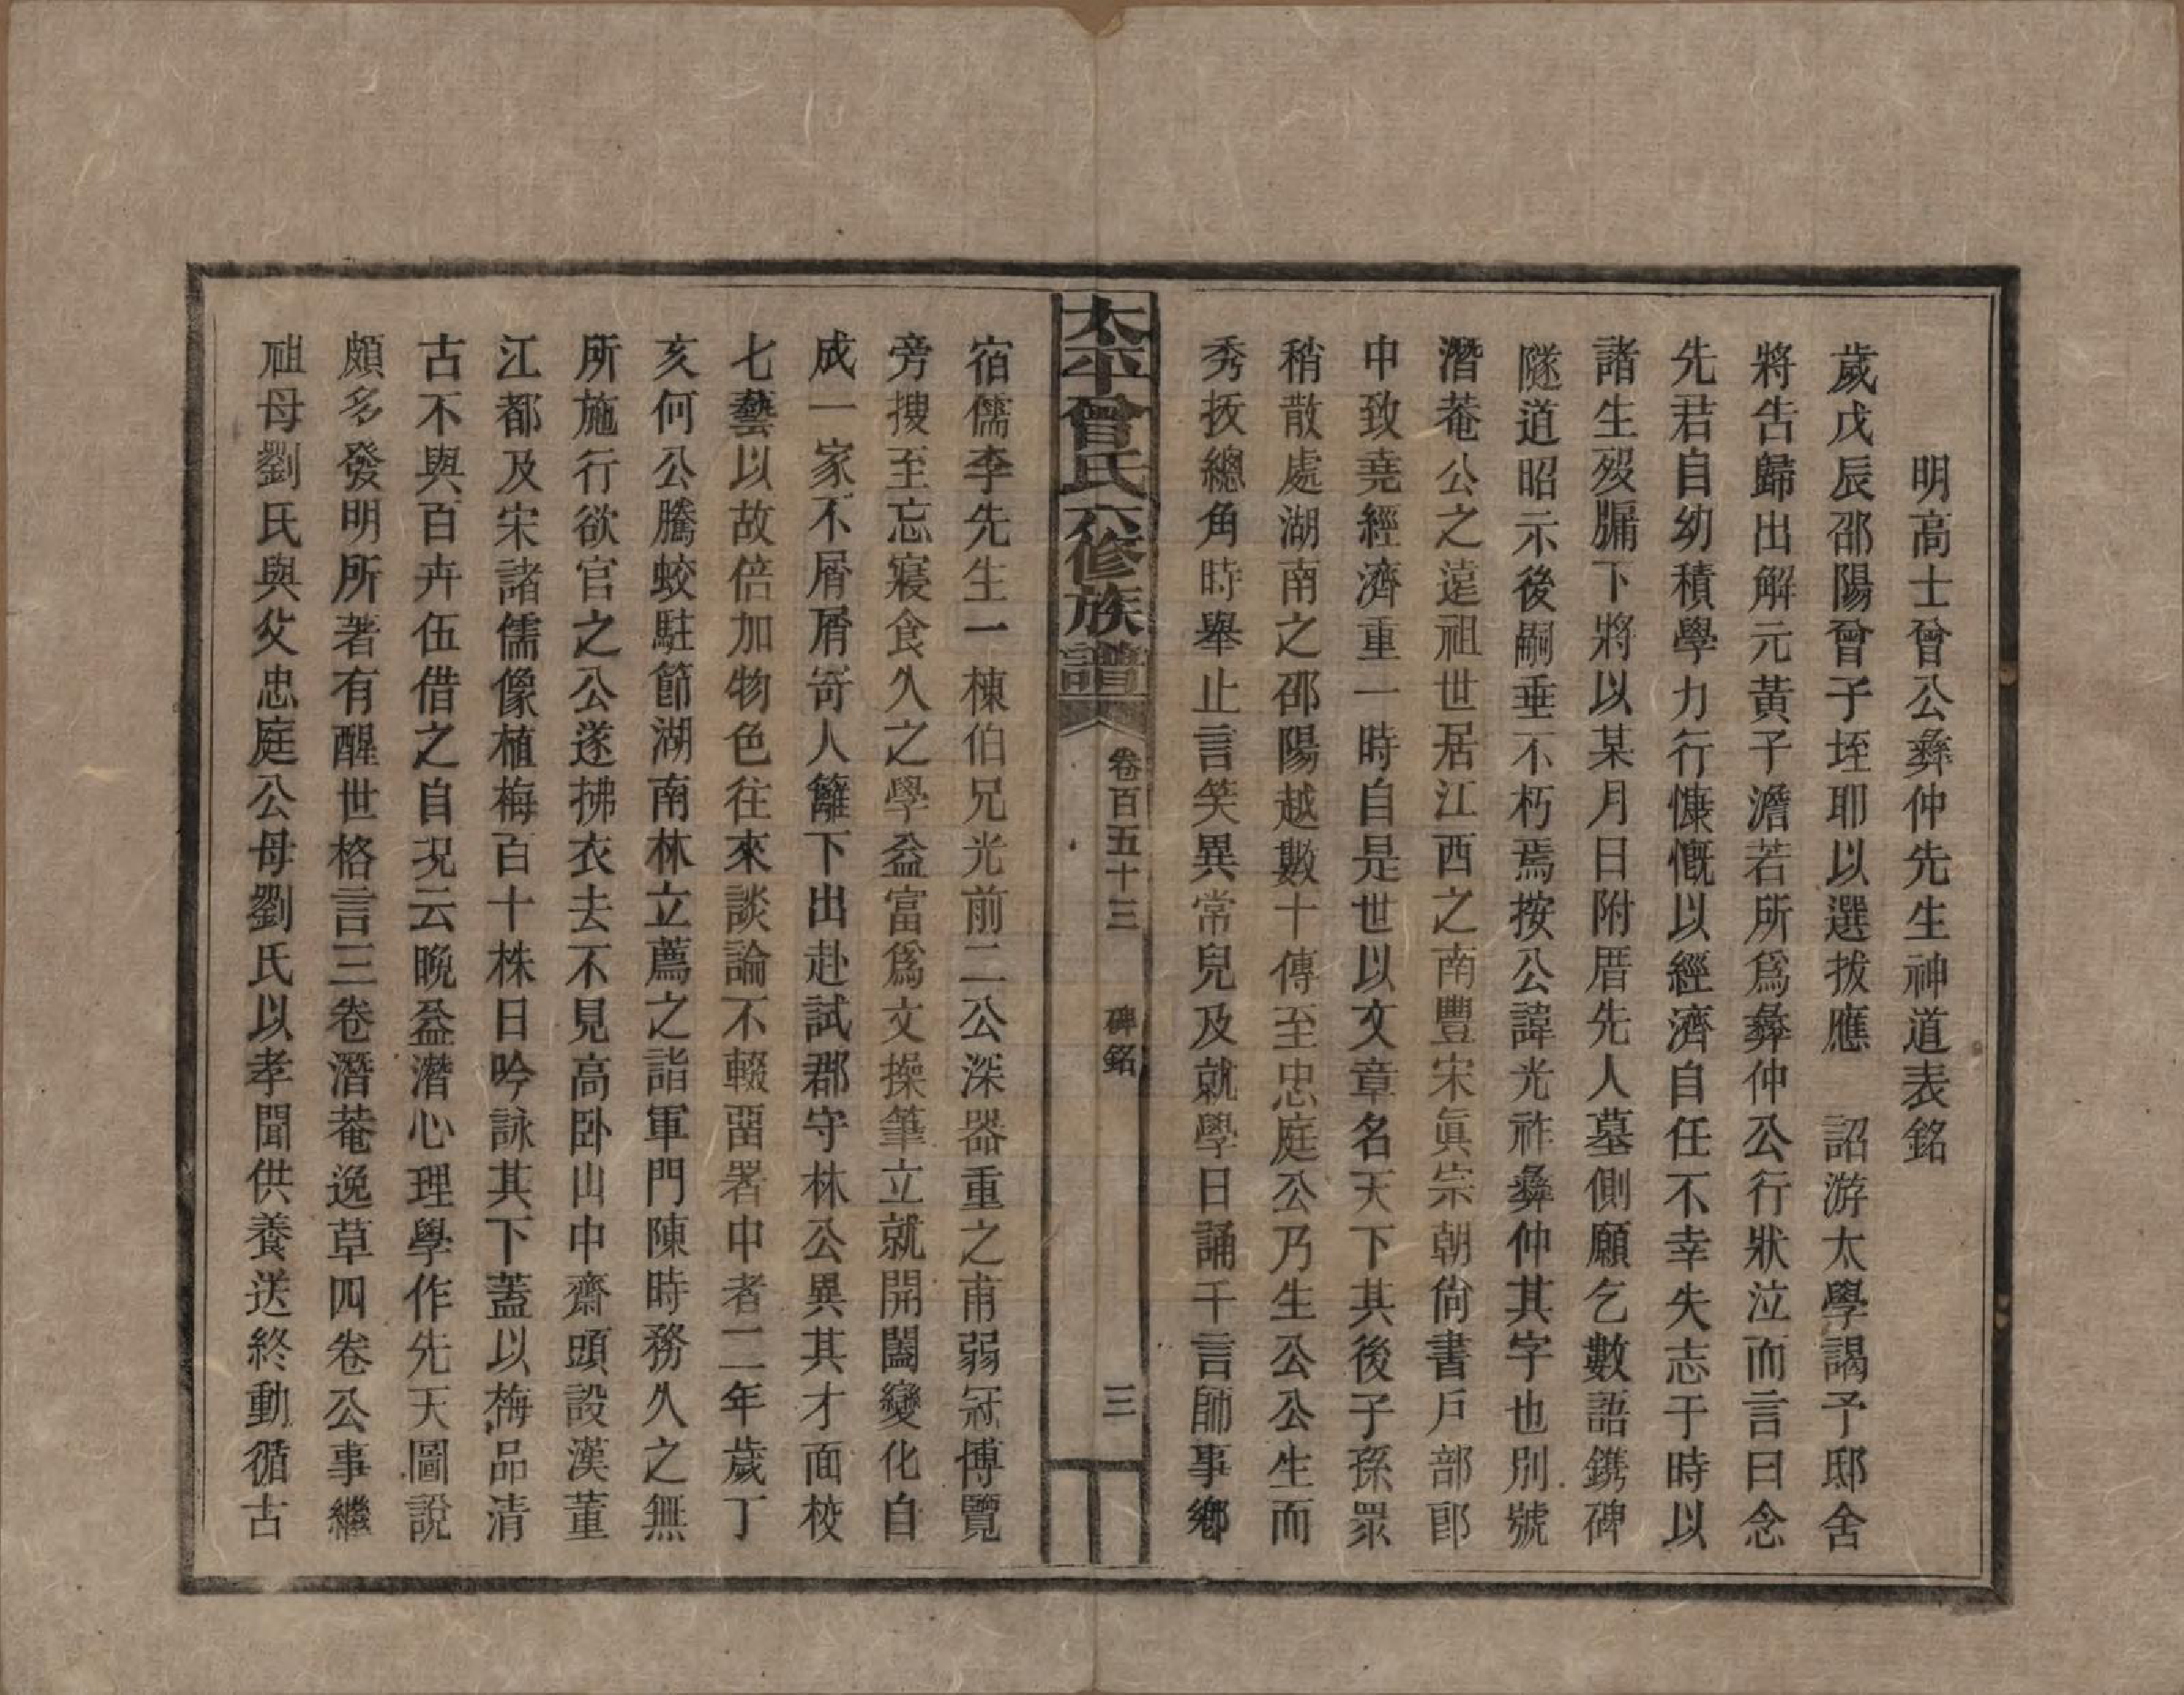 明高士曾公彜仲先生神道表銘
歲戊辰邵陽曾子垤耶以選拔應　詔游太學謁予邸舍
將告歸出解元黃子澹若所爲彜仲公行狀泣而言曰念
先君自幼積學力行慷慨以經濟自任不幸失志于時以
諸生歿牖下將以某月日附厝先人墓側願乞數語鐫碑
隧道昭示後嗣垂不朽焉按公諱光祚彜仲其字也別號
潛菴公之遠祖世居江西之南豐宋眞宗朝尙書戶部郎
中致堯經濟重一時自是世以文章名天下其後子孫眾
稍散處湖南之邵陽越數十傳至忠庭公乃生公公生而
秀拔總角時舉止言笑異常兒及就學日誦千言師事鄉
太平曾氏六修族譜　卷百五十三　碑銘　三
宿儒李先生一棟伯兄光前二公深器重之甫弱冠博覽
旁搜至忘寢食久之學益富爲文操筆立就開闔變化自
成一家不屑屑寄人籬下出赴試郡守林公異其才面校
七藝以故倍加物色往來談論不輟畱署中者二年歲丁
亥何公騰蛟駐節湖南林立薦之詣軍門陳時務久之無
所施行欲官之公遂拂衣去不見高卧山中齋頭設漢董
江都及宋諸儒像植梅百十株日吟詠其下蓋以梅品清
古不與百卉伍借之自況云晩益潛心理學作先天圖說
頗多發明所著有醒世格言三卷潛菴逸草四卷公事繼
祖母劉氏與父忠庭公母劉氏以孝聞供養送終動循古